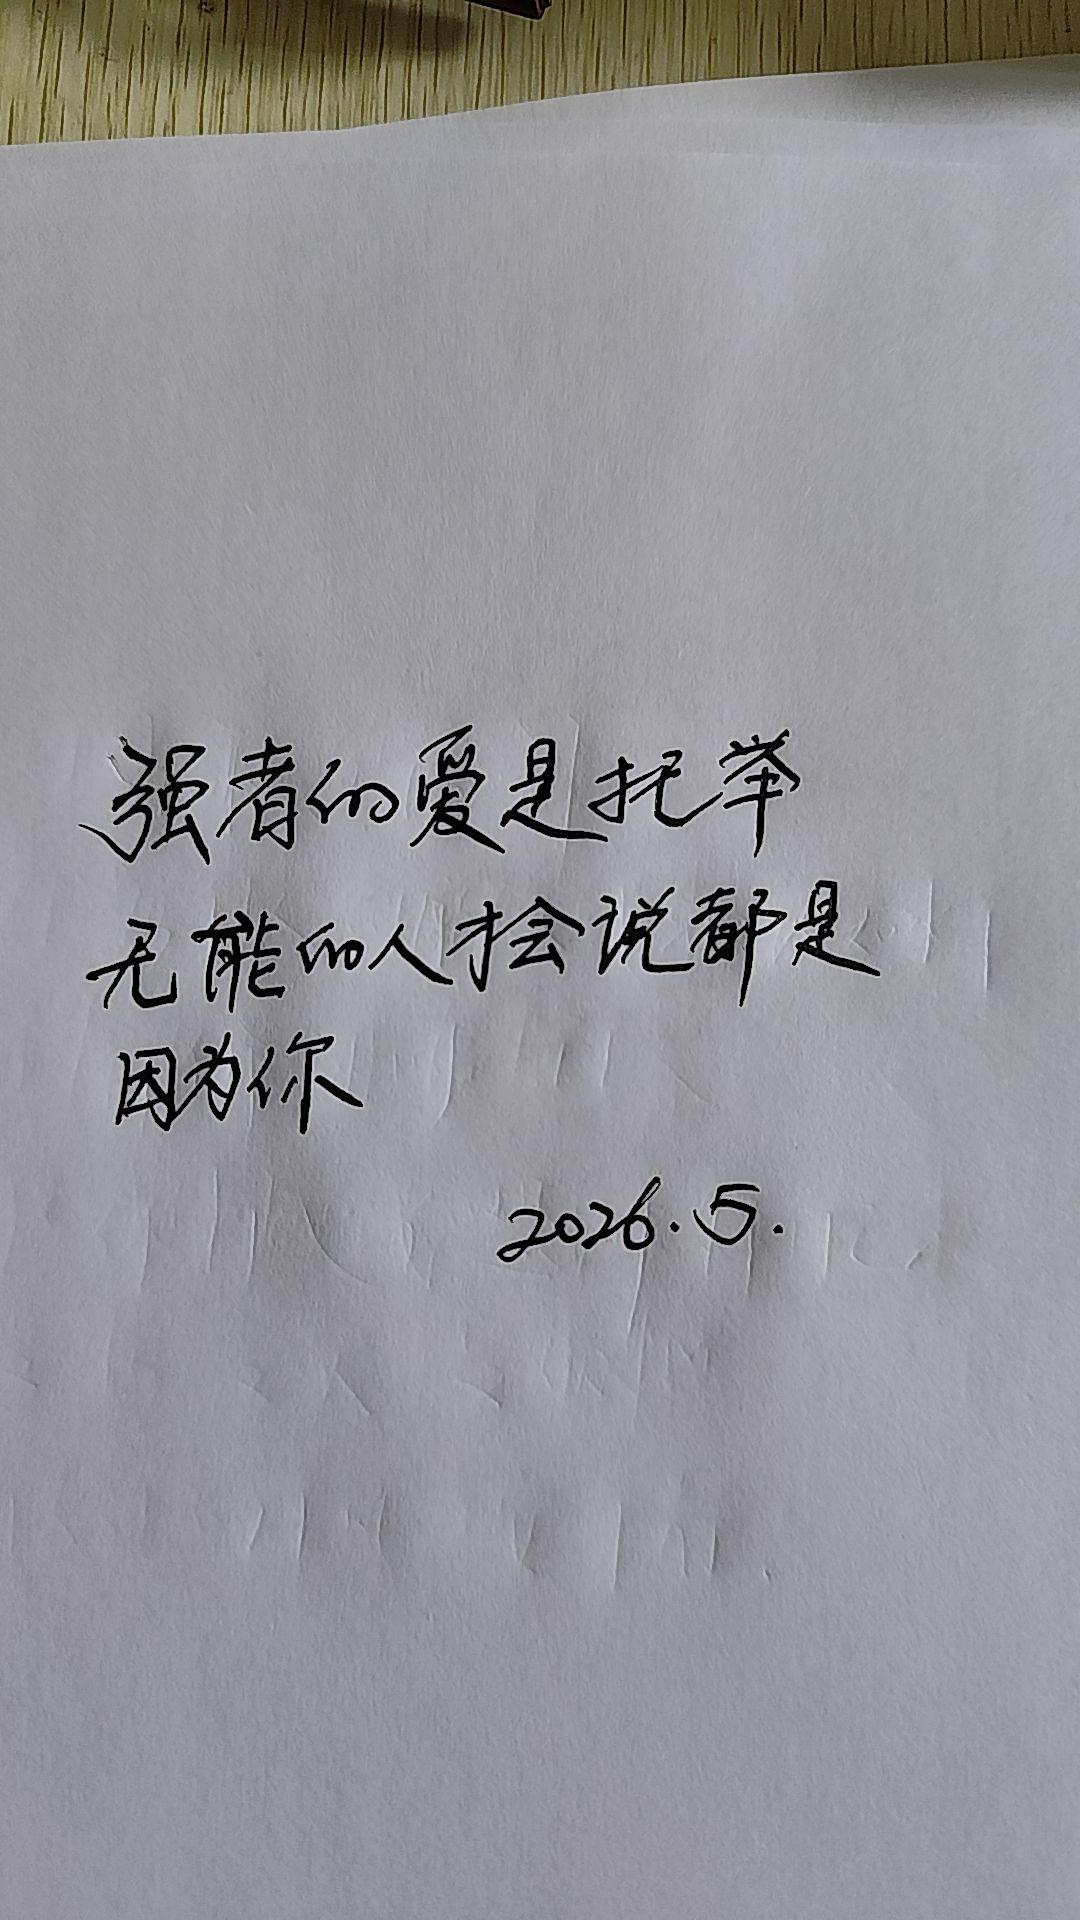 强者的爱是托举
无能的人才会说都是
因为你
2026.5.